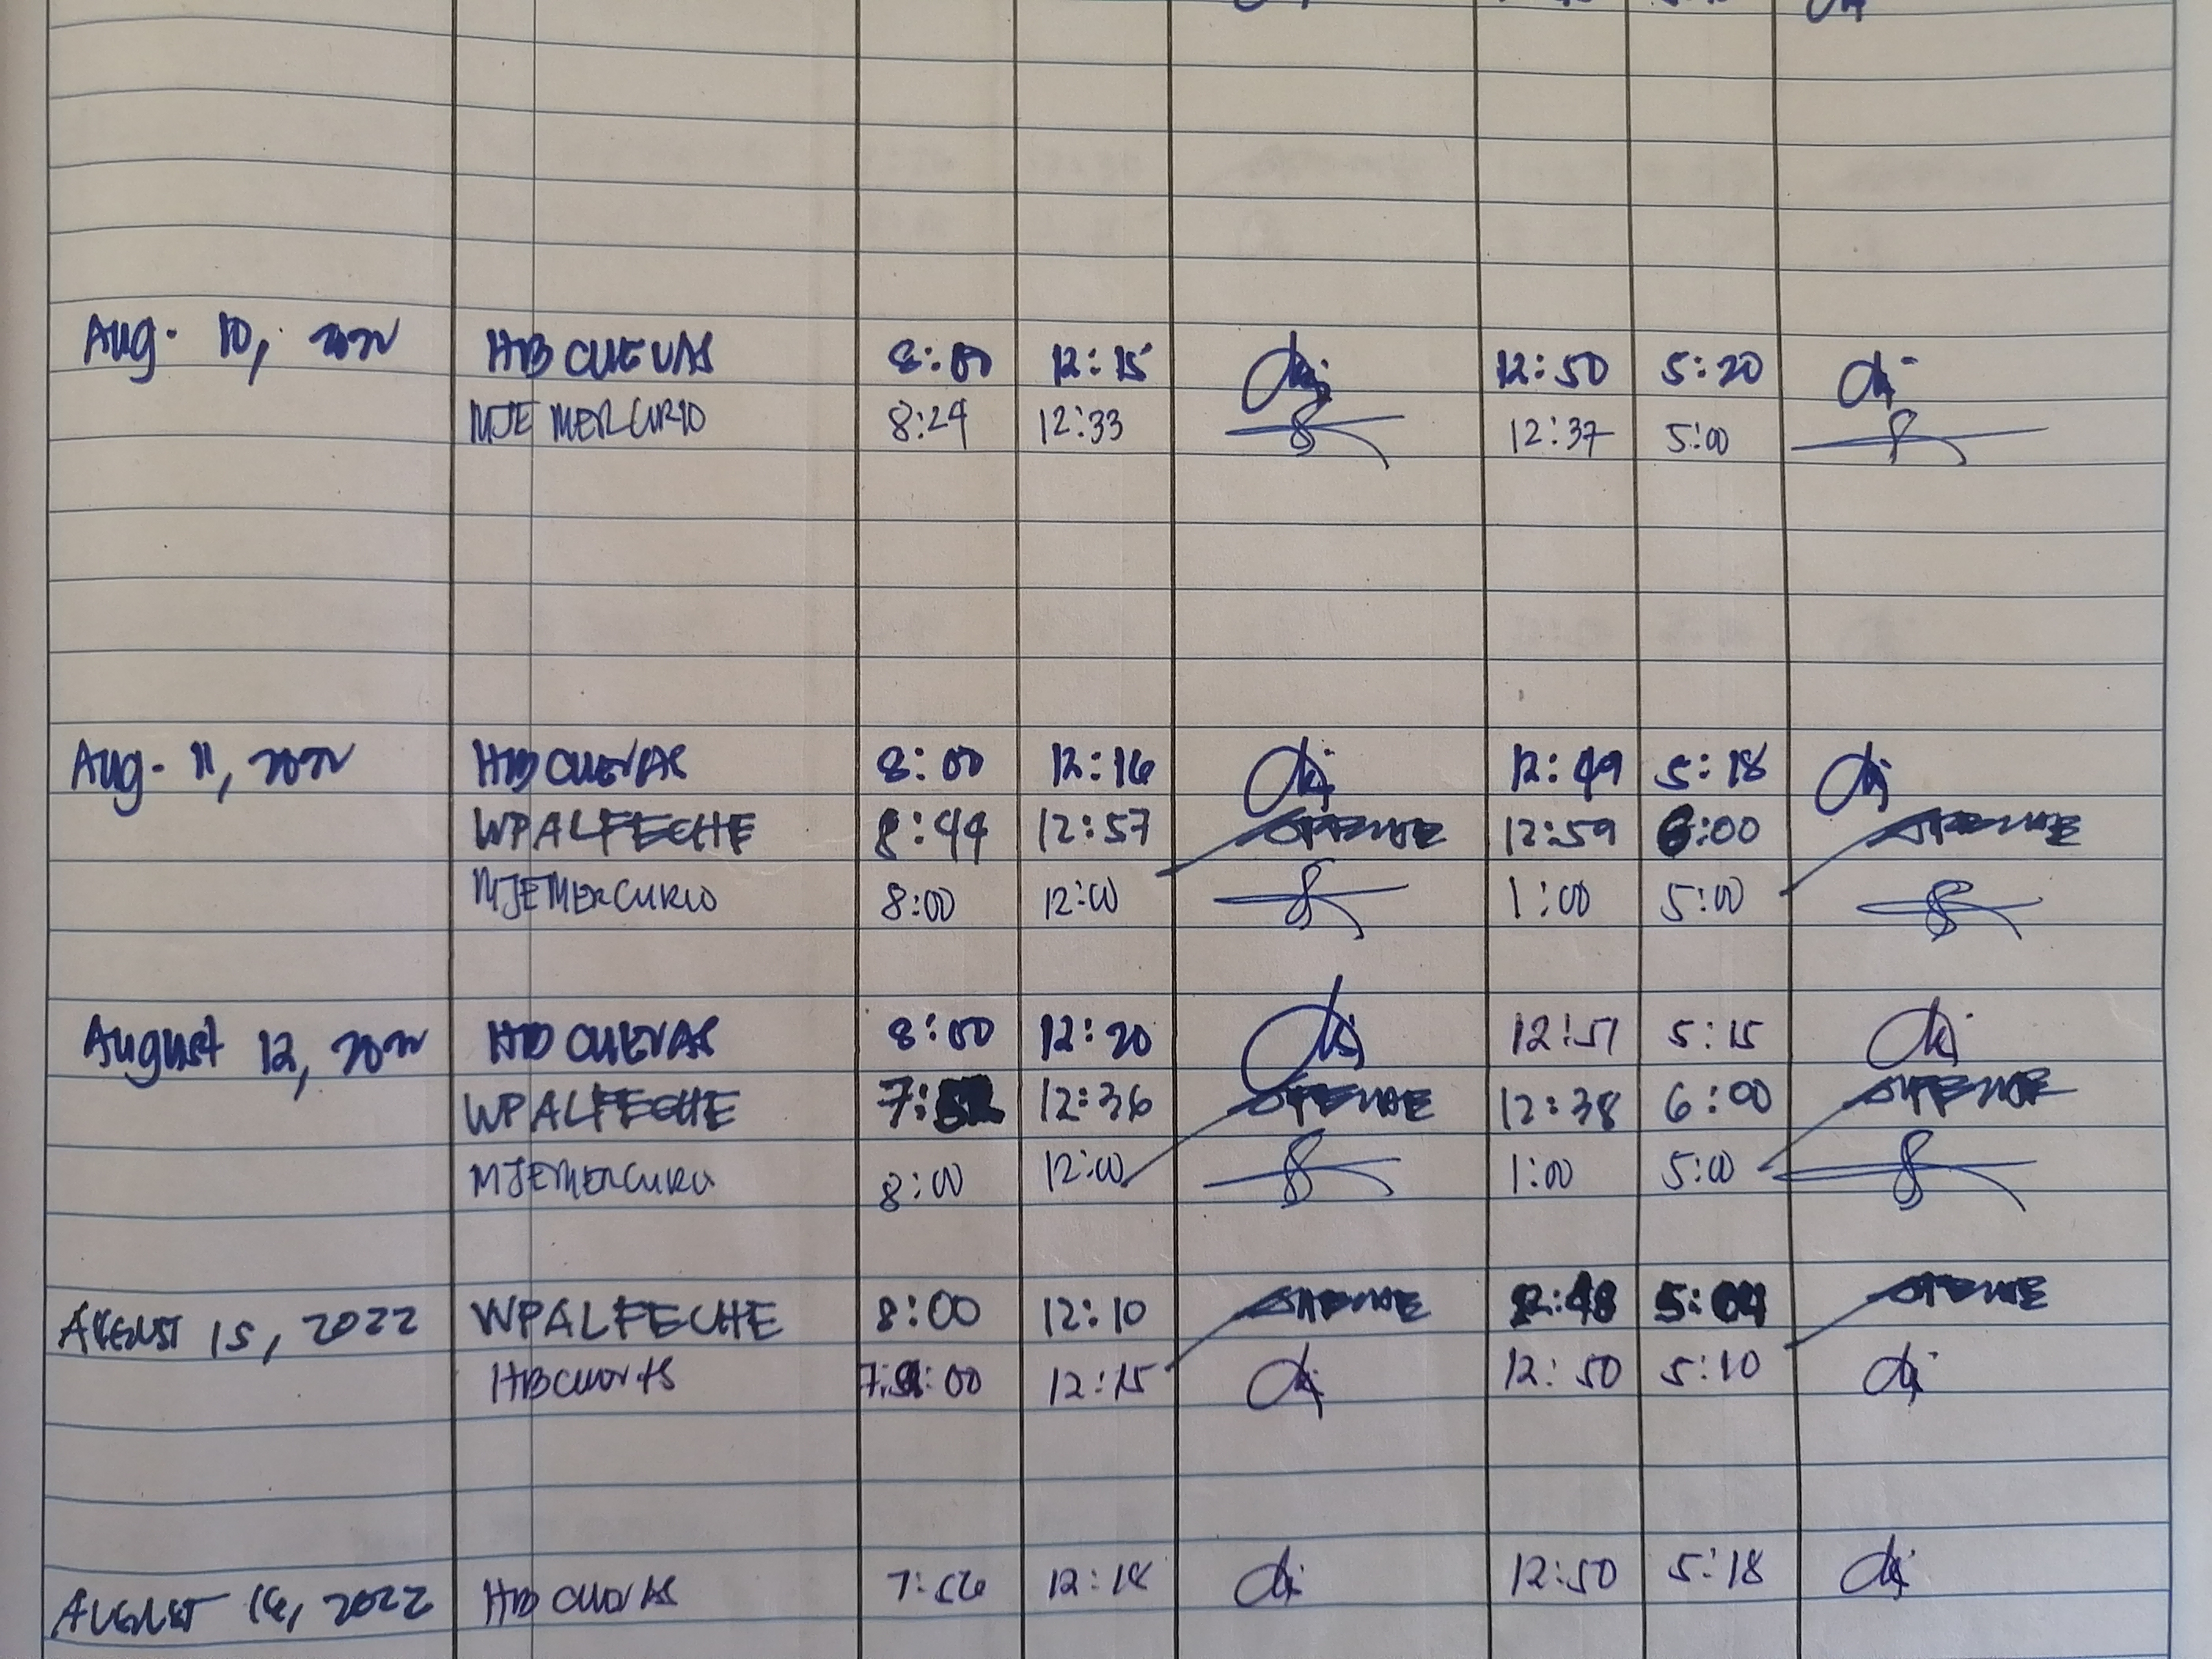 Aug. 10, 2022 HB CUEVAS 8:00 12:15 12:50 5:20
MJE MERCURIO 8:29 12:33 12:37 5:00
Aug. 11, 2022 HB CUEVAS 8:00 12:16 12:49 5:18
WPALFECHE 8:44 12:57 12:59 6:00
MJEMERCURIO 8:00 12:00 1:00 5:00
August 12, 2022 HB CUEVAS 8:00 12:20 12:51 5:15
WPALFECHE 12:36 12:38 6:00
MJEMERCURIO 8:00 12:00 1:00 5:00
AUGUST 15, 2022 WPALFECHE 8:00 12:10 12:48 5:04
HB CUEVAS 12:15 12:50 5:10
AUGUST 16, 2022 HB CUEVAS 7:56 12:18 12:50 5:18